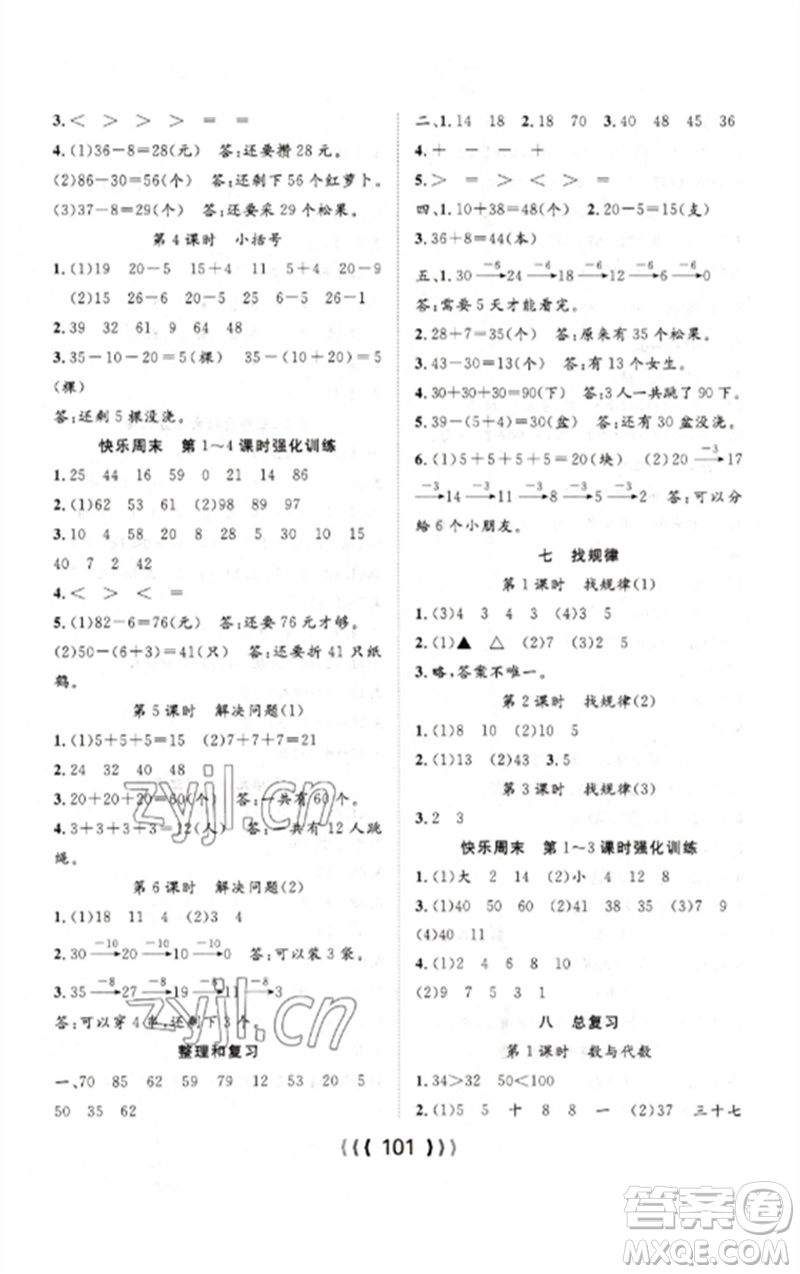 3.< > > > = =
4.(1)36-8=28(元) 答:还要攒 28 元。
(2)86-30=56(个) 答:还剩下 56 个红萝卜。
(3)37-8=29(个) 答:还要采 29 个松果。
第 4 课时 小括号
1.(1)19 20-5 15+4 11 5+4 20-9
(2)15 26-6 21-6 35 26 26-1
2.39 32 61 9 64 48
3.35-10-20=5(棵) 35-(10+20)=5
(棵)
答:还剩 5 棵没浇。
快乐周末 第 1~4 课时强化训练
1.25 44 16 59 0 21 14 86
2.(1)62 53 61 (2)98 89 97
3.10 4 58 20 8 28 5 30 15
40 7 2 42
4.< > > < =
5.(1)82-6=76(元) 答:还要 76 元才够。
(2)50-(6+3)=41(只) 答:还要折 41 只纸
鹤。
第 5 课时 解决问题(1)
1.(1)5+5+5=15 (2)7+7+7=21
2.24 32 40 48
3.20+20+20=60(个) 答:一共有 60 个。
4.3+3+3+3=12(人) 答:一共有 12 人跳
绳。
第 6 课时 解决问题(2)
1.(1)18 11 4 (2)3 4
2.30 -10→ 20 -10→ 10 -10→ 0 答:可以装 3 袋。
3.35 -8→ 27 -8→ 19 -8→ 11 -8→ 3
答:可以穿 4 串,还剩下 3 个。
整理和复习
一、70 85 62 59 79 12 54 53 20
50 35 62
二、1.14 18 2.18 70 3.40 48 45 36
4.+ - - +
5.> = > < > =
四、1.10+38=48(个) 2.20-5=15(支)
3.36+8=44(本)
五、1.30 -6→ 24 -6→ 18 -6→ 12 -6→ 6 -6→ 0
答:需要 5 天才能看完。
2.28+7=35(个) 答:原来有 35 个松果。
3.43-30=13(个) 答:有 13 个女生。
4.30+30+30=90(下) 答:3 人一共跳了 90 下。
5.39-(5+4)=30(盆) 答:还有 30 盆没浇。
6.(1)5+5+5+5=20(块) (2)20 -3→ 17
-3→ 14 -3→ 11 -3→ 8 -3→ 5 -3→ 2 答:可以分
给 6 个小朋友。
七 找规律
第 1 课时 找规律(1)
1.(3)4 3 4 3 (4)3 5
2.(1)▲ △ (2)7 (3)2 5
3.略,答案不唯一。
第 2 课时 找规律(2)
1.(1)8 10 (2)9 5 (3)40 50
2.(1)13 (2)43 3.5
第 3 课时 找规律(3)
3.2 3
快乐周末 第 1~3 课时强化训练
1.(1)大 2 14 (2)小 4 12 8
3.(1)40 50 60 (2)2 4 8 (3)7 9
(4)40 11
4.(1)2 4 6 8
(2)9 7 5 3 1
八 总复习
第 1 课时 数与代数
1.34>32 50<100
2.(1)5 五 十 8 8 一 (2)37 三十七
101
zyjl.cn
zyjl.cn
答案卷
MXQE.COM